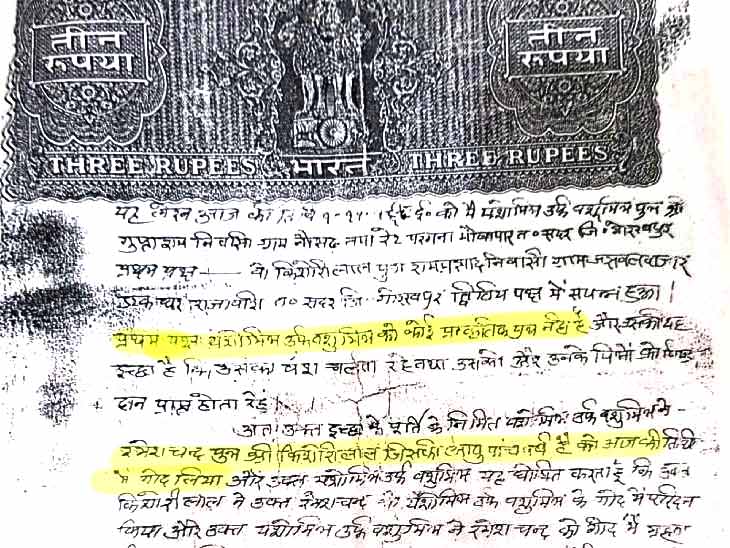 तीन तीन
रूपया रूपया
THREE RUPEES भारत THREE RUPEES
यह लिखत आज की को मै यशोमित्र उर्फ वशुमित्र पुत्र श्री
ग्राम नौसढ़ तप्पा परगना त० सदर जि० गोरखपुर
प्रथम पक्ष व किशोरीलाल पुत्र रामप्रसाद निवासी ग्राम जसवलबाजार
डाकघर त० सदर जि० गोरखपुर द्वितिय पक्ष में सपन्न हुआ।
प्रथम पक्ष यशोमित्र उर्फ वशुमित्र को कोई प्राकृतिक पुत्र नहीं है और उसकी यह
इच्छा है कि उसका वंश चलता रहे तथा उसको और उनके पितरों को पिण्ड
दान प्राप्त होता रहे।
अतः उक्त इच्छा के पूर्ति के निमित यशोमित्र उर्फ वशुमित्र ने
रमेश चन्द पुत्र श्री किशोरीलाल जिसकी आयु पांच वर्ष है को आज की तिथि
में गोद लिया और उक्त यशोमित्र उर्फ वशुमित्र यह घोषित करता हूं कि उक्त
किशोरीलाल ने उक्त रमेश चन्द को यशोमित्र उर्फ वशुमित्र के गोद में
किया और उक्त यशोमित्र उर्फ वशुमित्र ने रमेश चन्द को गोद में ग्रहण